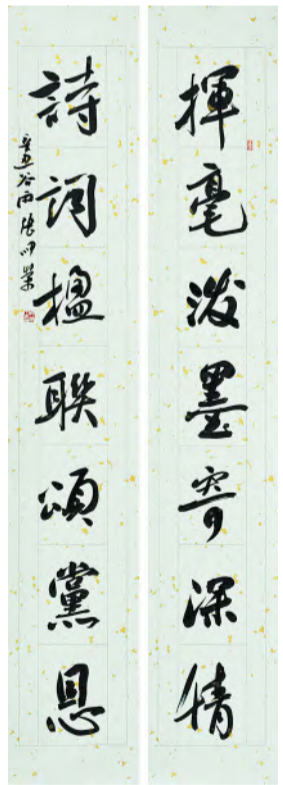 揮毫潑墨寄深情
詩詞楹聯頌黨恩
辛丑谷雨